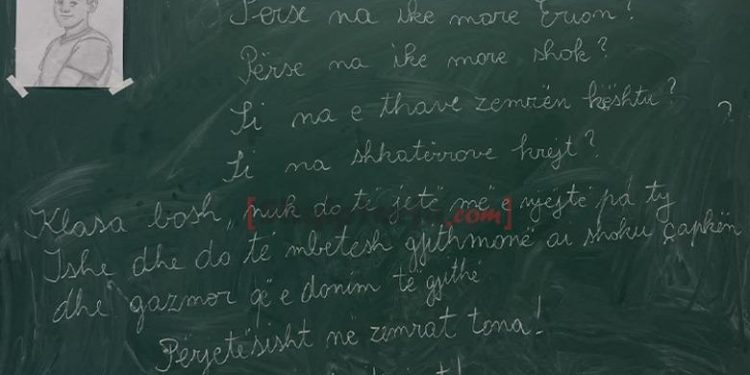 Perse na ike more Erion?
Përse na ike more shok?
Si na e thave zemrën kështu?
?
Si na shkatërrove krejt?
Klasa bosh, nuk do të jetë më e njëjtë pa ty
Ishe dhe do të mbetesh gjithmonë ai shoku çapkën
dhe gazmor që e donim të gjithë
Përjetësisht në zemrat tona!